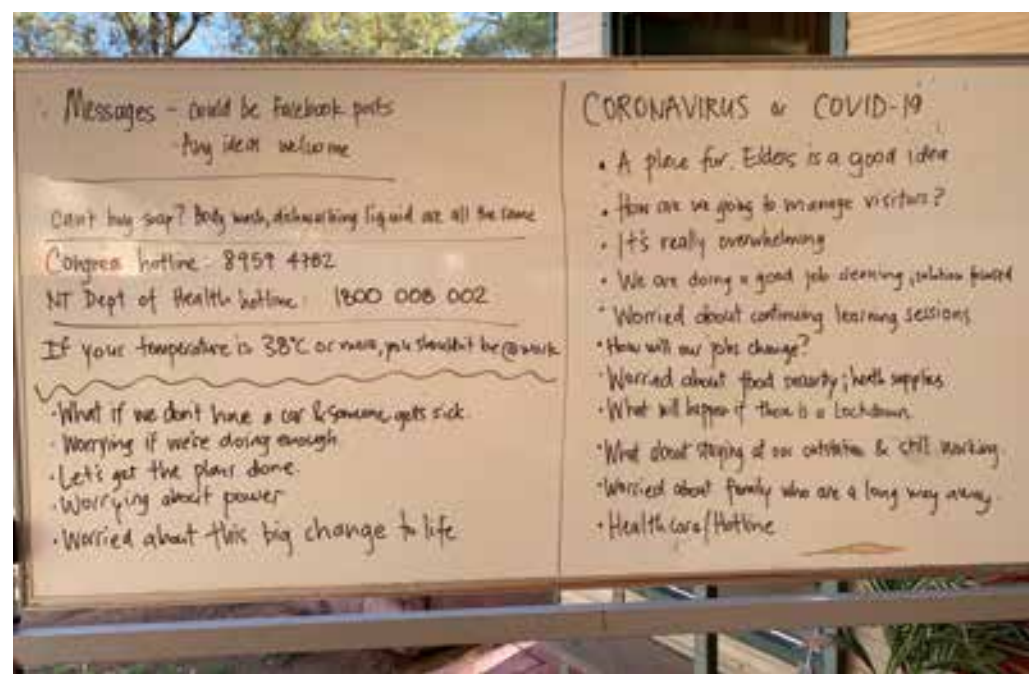 Messages - could be Facebook posts
- Any ideas welcome
Can't buy soap? Body wash, dishwashing liquid are all the same
Congress hotline: 8959 4782
NT Dept of Health hotline: 1800 008 002
If your temperature is 38°C or more, you shouldn't be @ work
• What if we don't have a car & someone gets sick.
• Worrying if we're doing enough
• Let's get the plans done.
• Worrying about power
• Worried about this big change to life
CORONAVIRUS or COVID-19
• A place for Elders is a good idea
• How are we going to manage visitors?
• It's really overwhelming
• We are doing a good job cleaning, solution focused
• Worried about continuing learning sessions
• How will our jobs change?
• Worried about food security; health supplies
• What will happen if there is a Lockdown.
• What about staying at our outstation & still working.
• Worried about family who are a long way away.
• Healthcare/Hotline